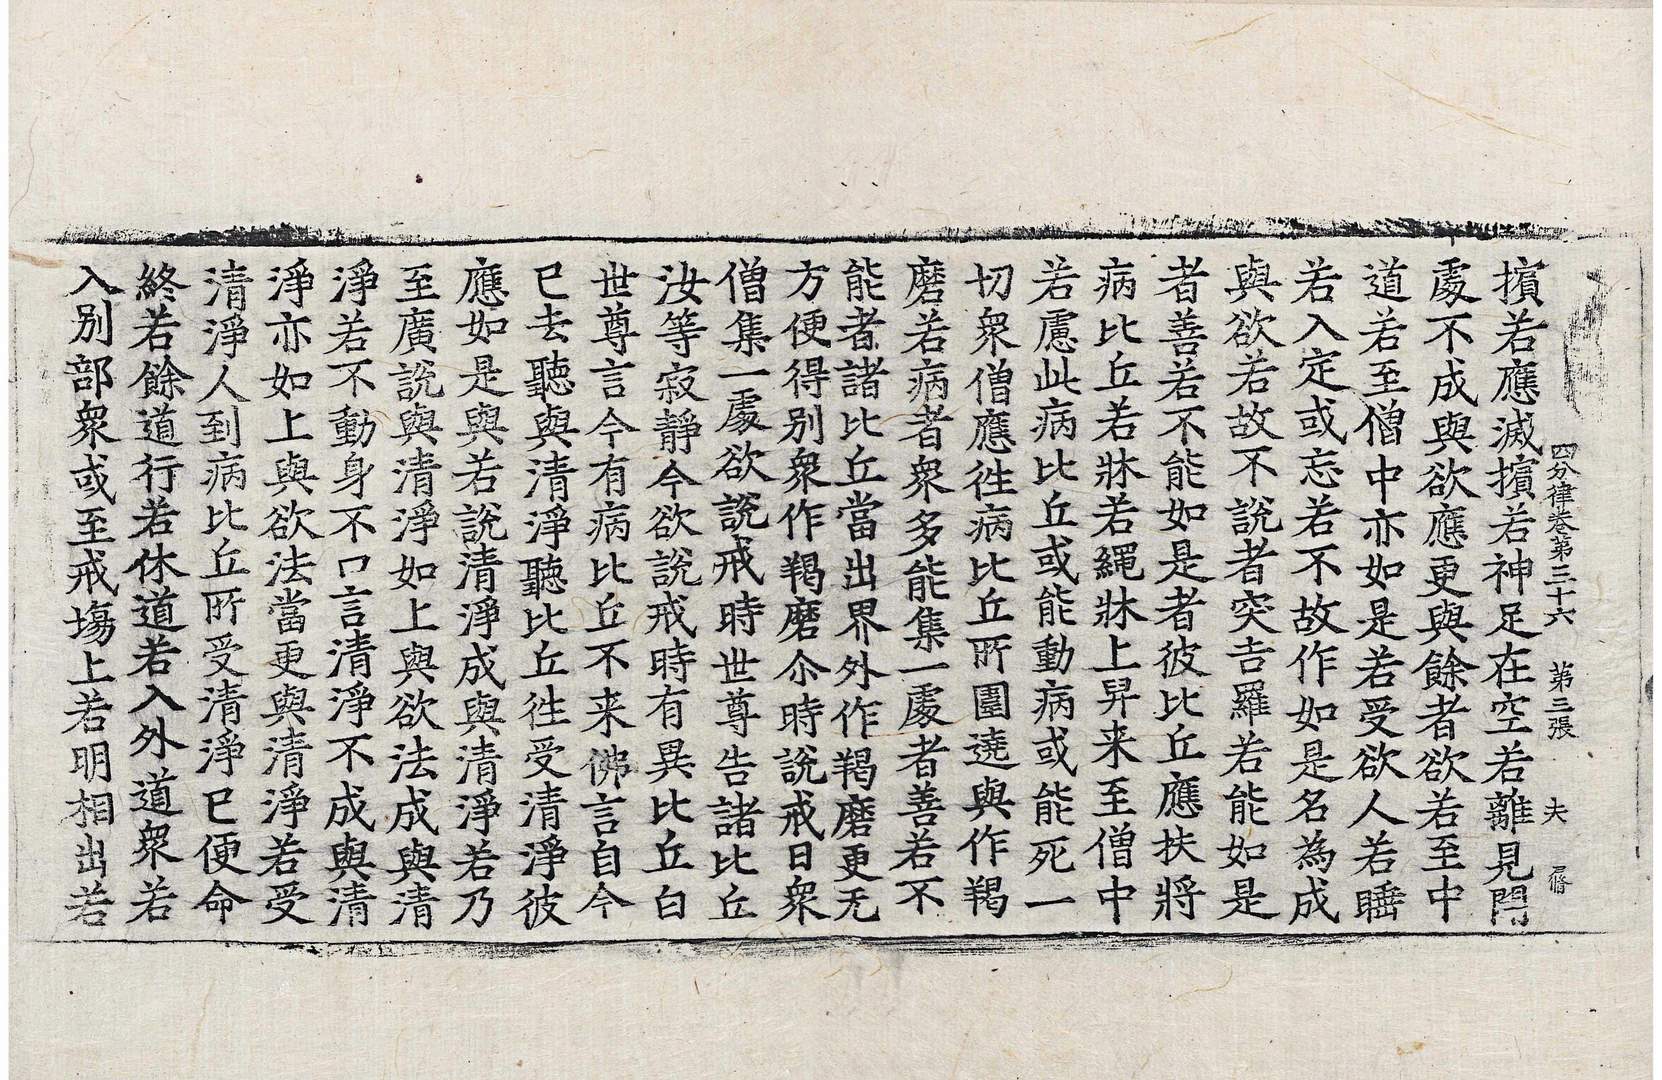 四分律卷第三十六 第三張 夫
擯若應滅擯若神足在空若離見聞
處不成與欲應更與餘者欲若至中
道若至僧中亦如是若受欲人若睡
若入定或忘若不故作如是名為成
與欲若故不說者突吉羅若能如是
者善若不能如是者彼比丘應扶將
病比丘若牀若繩牀上舁来至僧中
若慮此病比丘或能動病或能死一
切衆僧應徃病比丘所圍遶與作羯
磨若病者衆多能集一處者善若不
能者諸比丘當出界外作羯磨更无
方便得別衆作羯磨尒時說戒日衆
僧集一處欲說戒時世尊告諸比丘
汝等寂靜今欲說戒時有異比丘白
世尊言今有病比丘不来佛言自今
已去聽與清淨聽比丘徃受清淨彼
應如是與若說清淨成與清淨若乃
至廣說與清淨如上與欲法成與清
淨若不動身不口言清淨不成與清
淨亦如上與欲法當更與清淨若受
清淨人到病比丘所受清淨已便命
終若餘道行若休道若入外道衆若
入別部衆或至戒塲上若明相出若